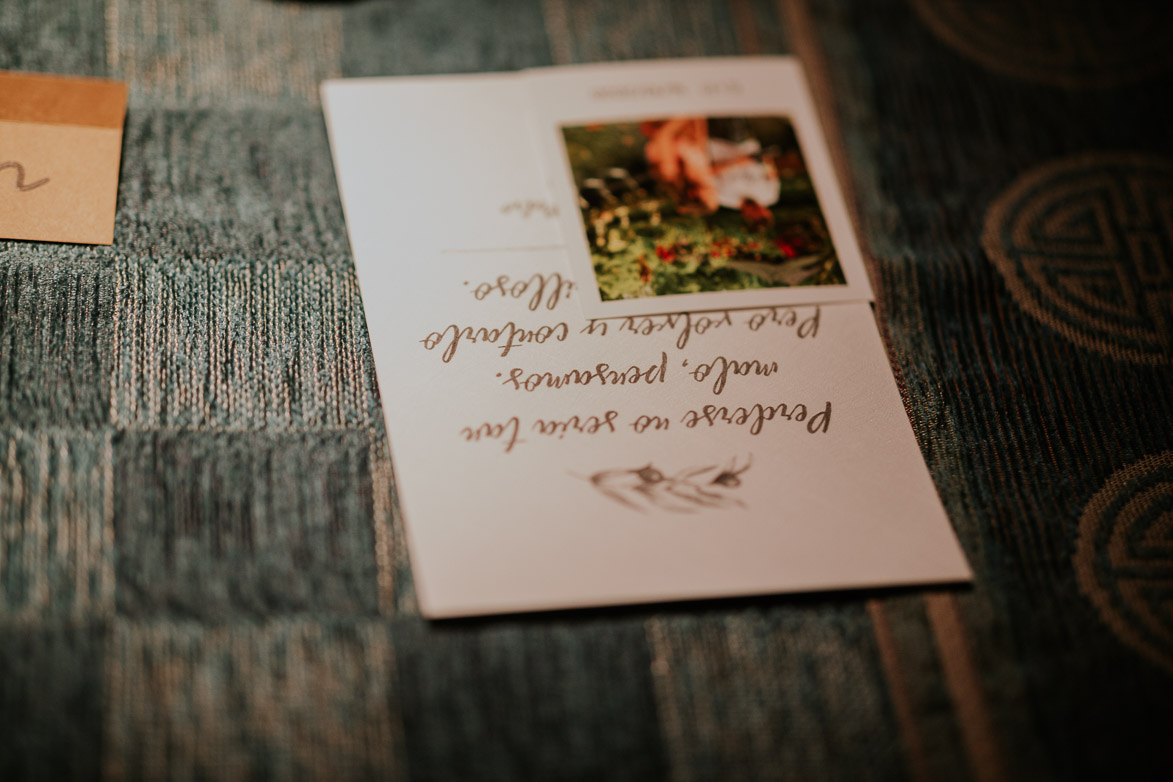 Perderse no seria tan
malo, pensamos.
Pero volver y contarlo
illoso.